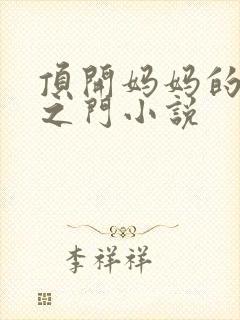 頂開妈妈的
之門小説
李祥祥